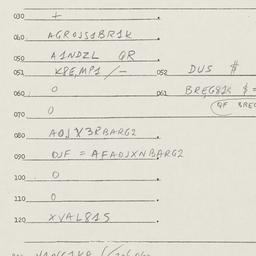 030 +
040 AGROJS1BR1K
050 A1NDZL QR
051 K8E,MP1 /- 052 DUS $
060 0 061 BREG81K $=
070 0
080 AOJX3RBARG2
090 DJF = AFADJXNBARG2
100 0
110 0
120 XVAL815